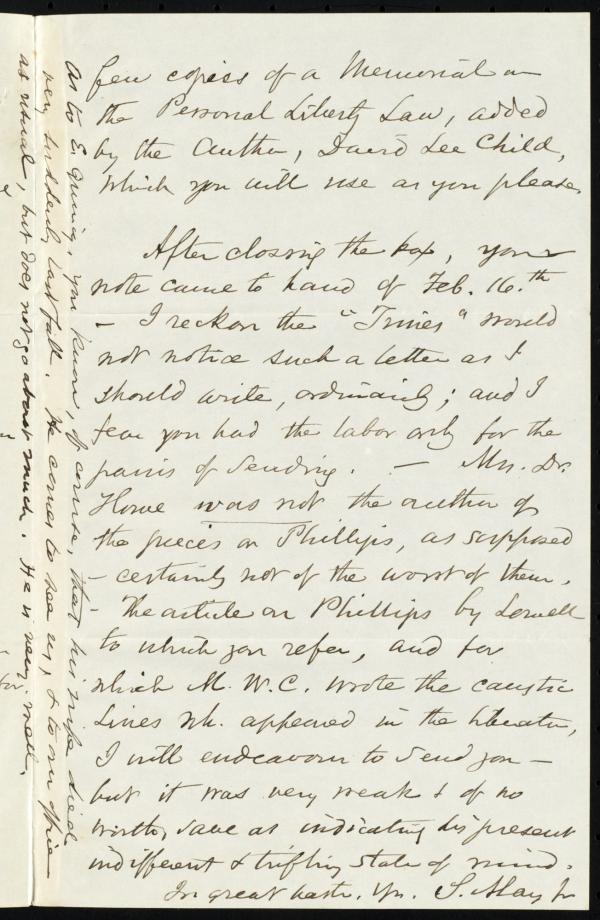 few copies of a Memorial on
the Personal Liberty Law, added
by the Author, David Lee Child,
which you will use as you please.
After closing the box, your
note came to hand of Feb. 16.th
– I reckon the "Times" would
not notice such a letter as I
should write, ordinarily; and I
fear you had the labor only for the
pains of sending. – Mrs. Dr.
Howe was not the author of
the pieces on Phillips, as supposed
– certainly not of the worst of them.
– The article on Phillips by Lowell
to which you refer, and for
which M. W. C. wrote the caustic
lines wh. appeared in the Liberator,
I will endeavour to send you –
but it was very weak & of no
worth, save as indicating his present
indifferent & trifling state of mind.
In great haste, Yrs. S. May Jr
As to E. Quincy, you know, of course, that his wife died
very suddenly last fall. He comes to see us, & to our office
as usual, but does not go about much. He is very well.